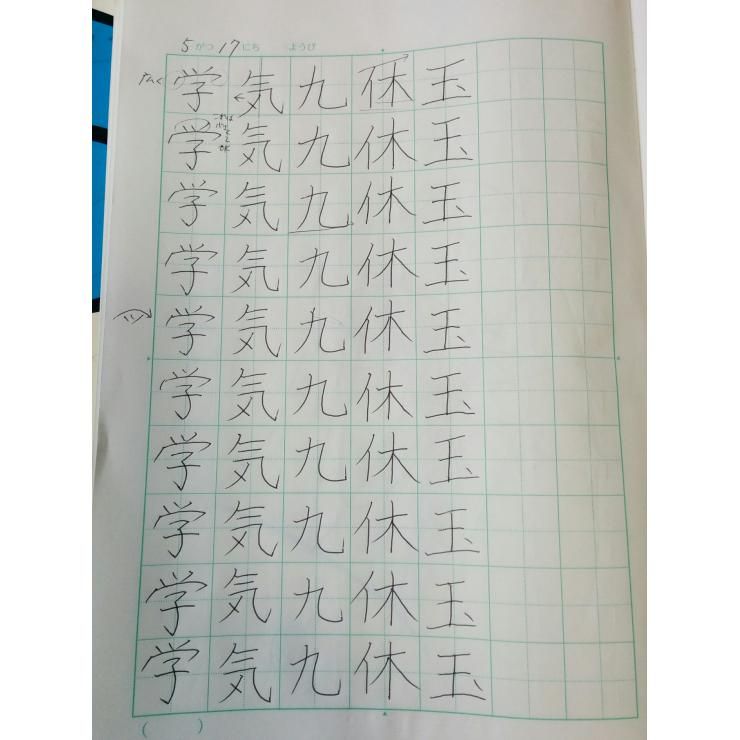 5がつ17にち ようび
学気九休玉
学気九休玉
学気九休玉
学気九休玉
学気九休玉
学気九休玉
学気九休玉
学気九休玉
学気九休玉
学気九休玉
( )